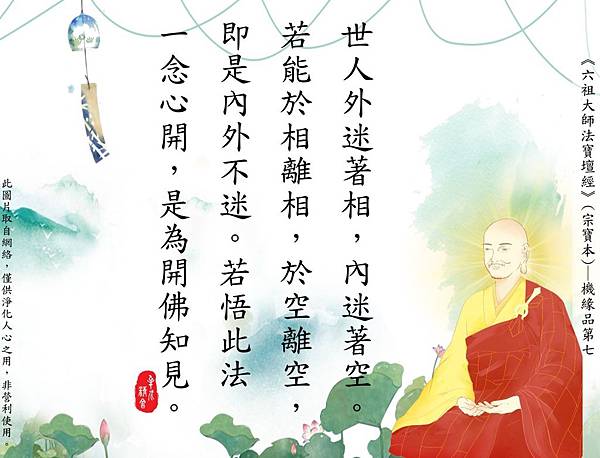 《六祖大師法寶壇經》（宗寶本）—機緣品第七
世人外迷著相，內迷著空。
若能於相離相，於空離空，
即是內外不迷。若悟此法
一念心開，是為開佛知見。
此圖片取自網絡，僅供淨化人心之用，非營利使用。